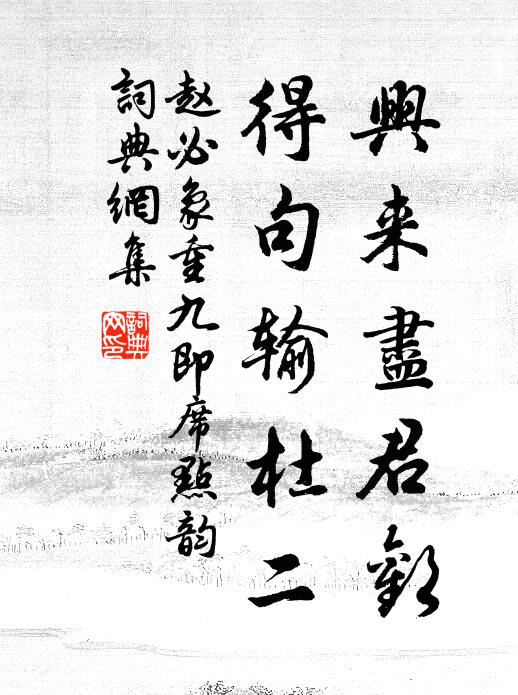 興来盡君歡
得句輸杜二
赵必象重九即席點韵
詞典網集
詞典
网印